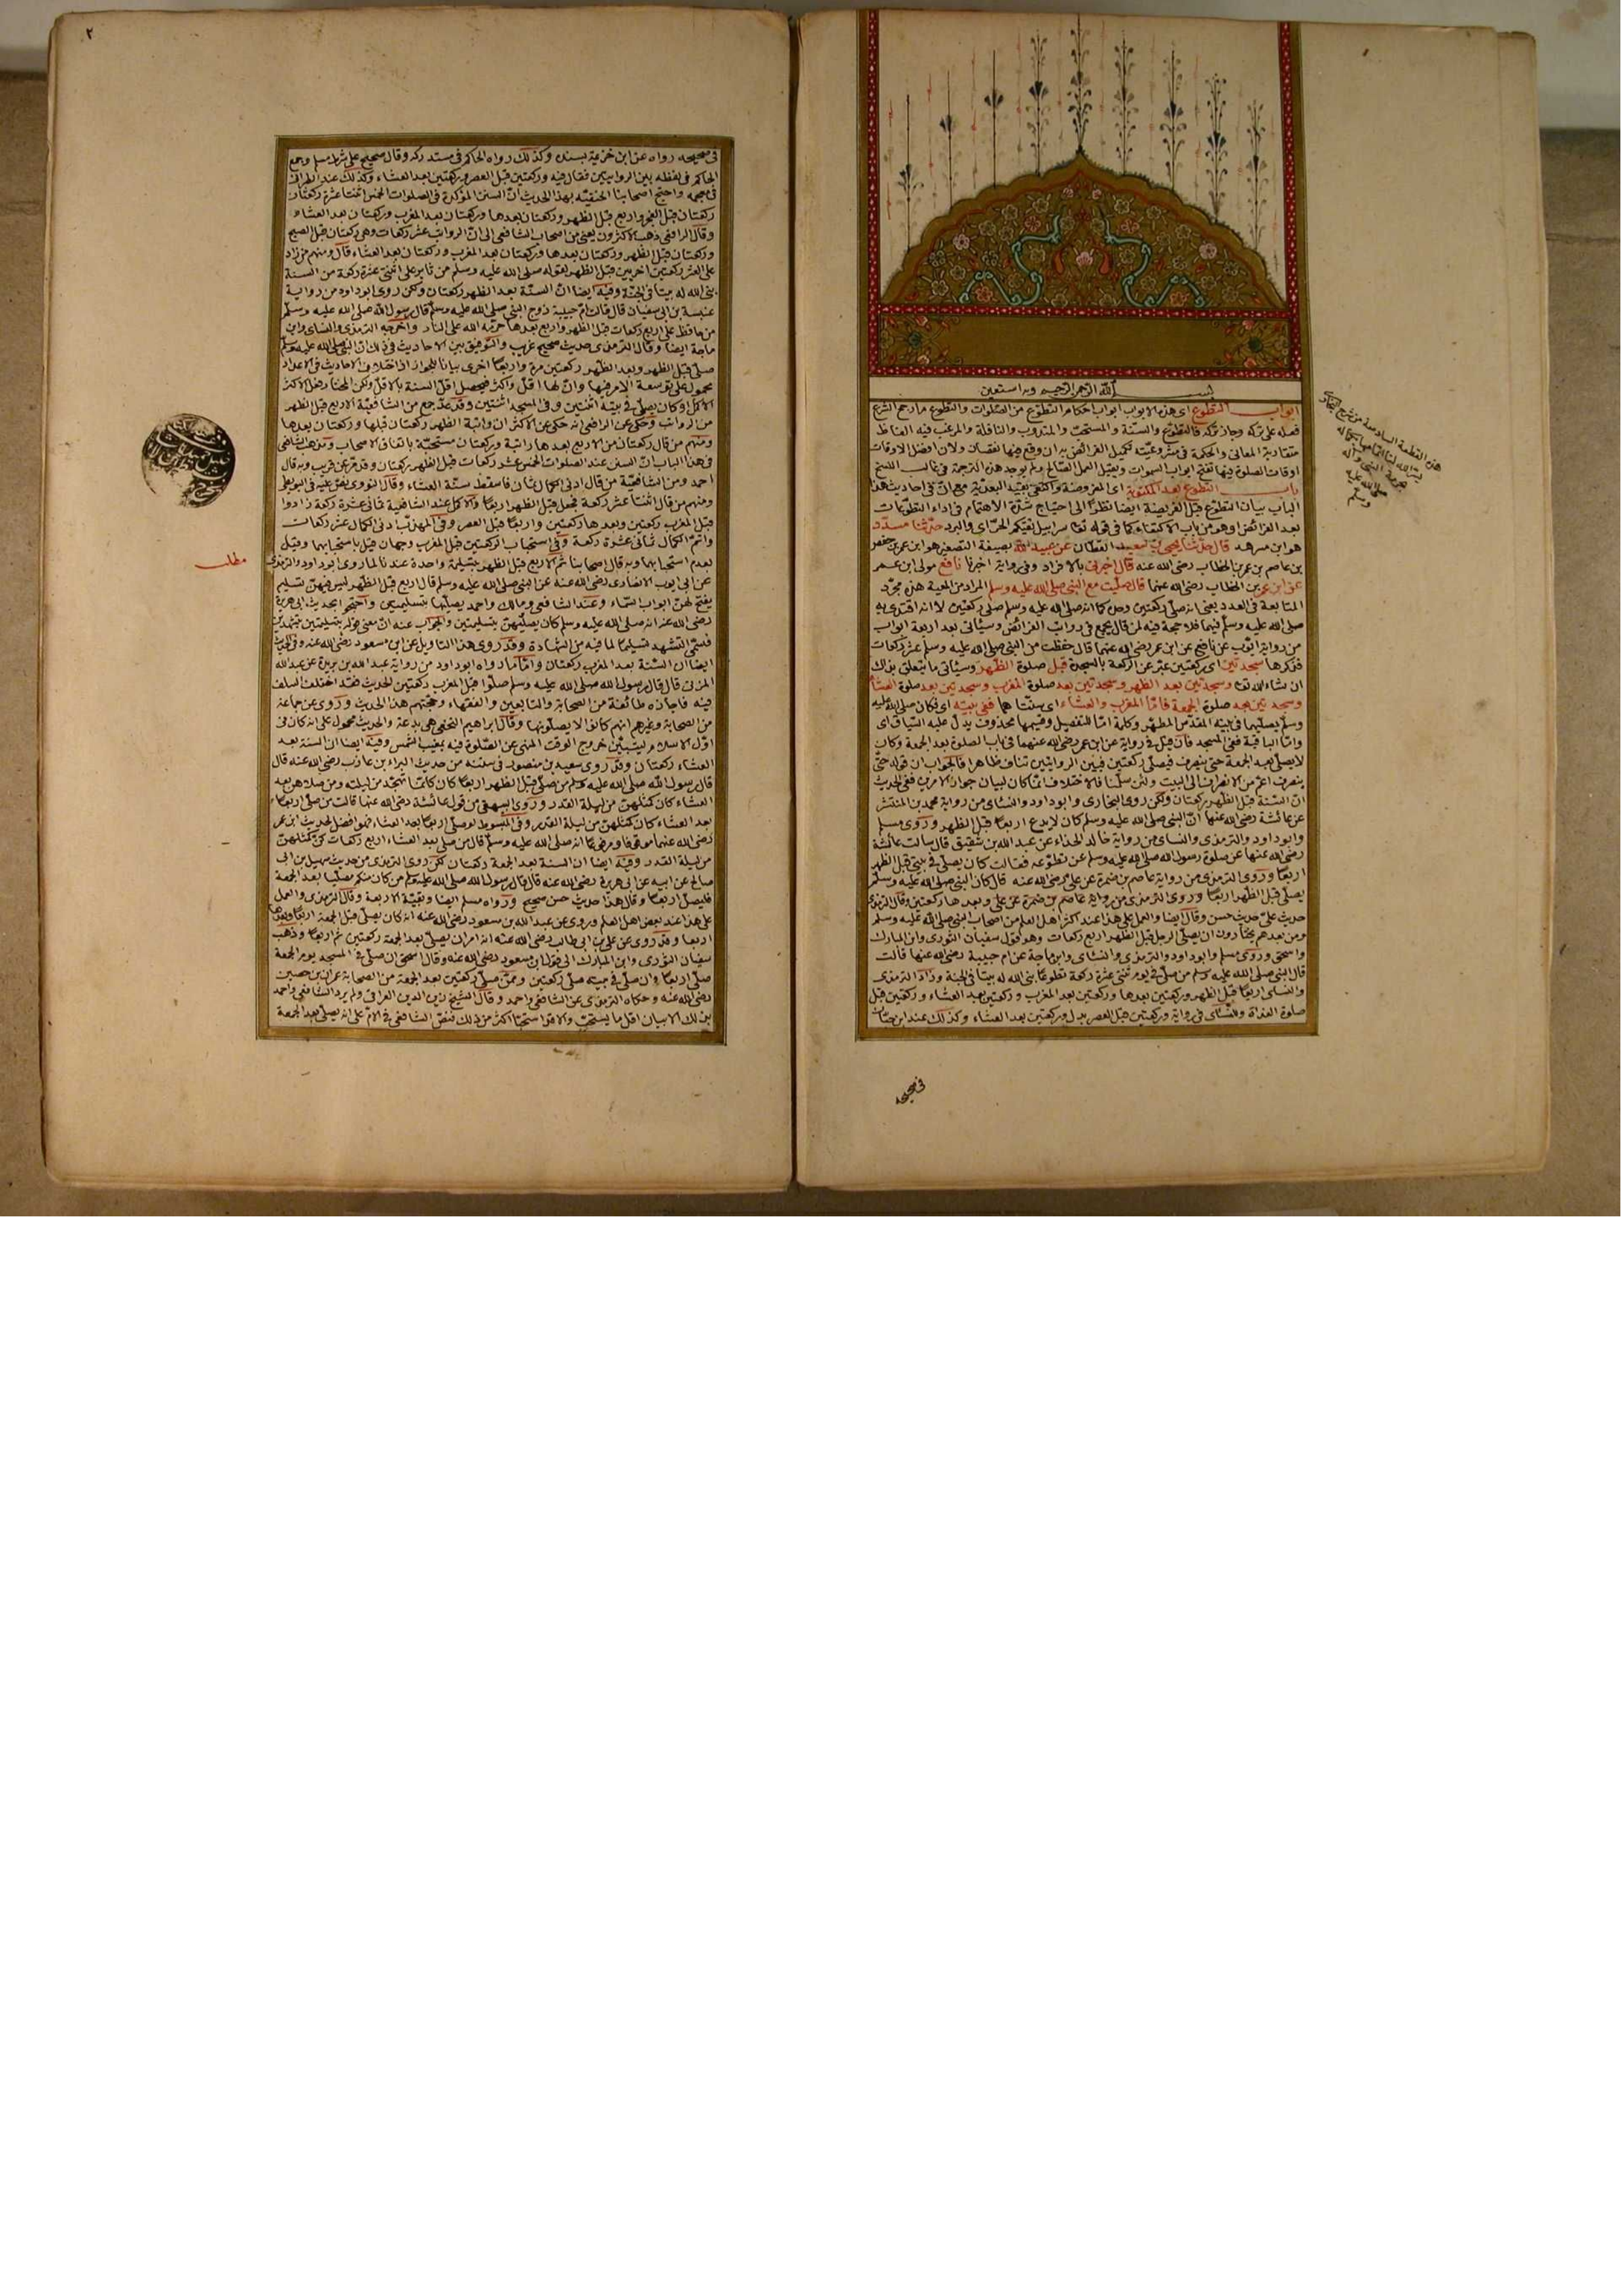 بسم الله الرحمن الرحيم وبه استعين
ابواب التطوع اى هذه الابواب ابواب احكام التطوع من الصلوات والتطوع ما رجح الشرع
فعله على تركه وجاز تركه فالتطوع والسنة والمستحب والمندوب والنافلة والمرغب فيه الفاظ
متقاربة المعانى والحكمة فى مشروعيته تكميل الفرائض به ان وقع فيها نقصان ولان افضل الاوقات
اوقات الصلوة فيها تفتح ابواب السموات ويقبل العمل الصالح ولم يوجد هذه الترجمة فى غالب النسخ
باب التطوع بعد المكتوبة اى المفروضة واكتفى بقيد البعدية مع ان فى احاديث هذا
الباب بيان التطوع قبل الفريضة ايضا نظرا الى احتياج شدة الاهتمام فى اداء التطوعات
بعد الفرائض او هو من باب الاكتفاء كما فى قوله تعا سرابيل تقيكم الحر اى والبرد حدثنا مسدد
هو ابن مسرهد قال حدثنا يحيى بن سعيد القطان عن عبيد الله بصيغة التصغير هو ابن عمر بن حفص
بن عاصم بن عمر بن الخطاب رضى الله عنه قال اخبرنى بالافراد وفى رواية اخبرنا نافع مولى ابن عمر
عن ابن عمر بن الخطاب رضى الله عنهما قال صليت مع النبى صلى الله عليه وسلم المراد من المعية هذه مجرد
المتابعة فى العدد يعنى انه صلى ركعتين وحده كما انه صلى الله عليه وسلم صلى ركعتين لا انه اقتدى به
صلى الله عليه وسلم فيهما فلا حجة فيه لمن قال يجمع فى رواتب الفرائض وسيأتى بعد اربعة ابواب
من رواية ايوب عن نافع عن ابن عمر رضى الله عنهما قال حفظت من النبى صلى الله عليه وسلم عشر ركعات
فذكرها سجدتين اى ركعتين عبر عن الركعة بالسجدة قبل صلوة الظهر وسيأتى ما يتعلق بذلك
ان شاء الله تعا وسجدتين بعد الظهر وسجدتين بعد صلوة المغرب وسجدتين بعد صلوة العشاء
وسجدتين بعد صلوة الجمعة فاما المغرب والعشاء اى سنتاهما ففى بيته اى فكان صلى الله عليه
وسلم يصليهما فى بيته المقدس المطهر وكلمة اما للتفصيل وقسيمها محذوف يدل عليه السياق اى
واما الباقية ففى المسجد فان قيل فى رواية عن ابن عمر رضى الله عنهما فى باب الصلوة بعد الجمعة وكان
لا يصلى بعد الجمعة حتى ينصرف فيصلى ركعتين فبين الروايتين تناف ظاهرا فالجواب ان قوله حتى
ينصرف اعم من الانصراف الى البيت ولئن سلمنا فالاختلاف انما كان لبيان جواز الامرين ففى الحديث
ان السنة قبل الظهر ركعتان ولكن روى البخارى وابو داود والنسائى من رواية محمد بن المنتشر
عن عائشة رضى الله عنها ان النبى صلى الله عليه وسلم كان لا يدع اربعا قبل الظهر وروى مسلم
وابو داود والترمذى والنسائى من رواية خالد الحذاء عن عبد الله بن شقيق قال سالت عائشة
رضى الله عنها عن صلوة رسول الله صلى الله عليه وسلم عن تطوعه فقالت كان يصلى فى بيتى قبل الظهر
اربعا وروى الترمذى من رواية عاصم بن ضمرة عن على رضى الله عنه قال كان النبى صلى الله عليه وسلم
يصلى قبل الظهر اربعا وروى الترمذى من رواية عاصم بن ضمرة عن على وبعدها ركعتين وقال الترمذى
حديث على حديث حسن وقال ايضا والعمل على هذا عند اكثر اهل العلم من اصحاب النبى صلى الله عليه وسلم
ومن بعدهم يختارون ان يصلى الرجل قبل الظهر اربع ركعات وهو قول سفيان الثورى وابن المبارك
واسحق وروى مسلم وابو داود والترمذى والنسائى وابن ماجة عن ام حبيبة رضى الله عنها قالت
قال النبى صلى الله عليه وسلم من صلى فى يوم ثنتى عشرة ركعة تطوعا بنى الله له بيتا فى الجنة وزاد الترمذى
والنسائى اربعا قبل الظهر وركعتين بعدها وركعتين بعد المغرب وركعتين بعد العشاء وركعتين قبل
صلوة الغداة وللنسائى فى رواية وركعتين قبل العصر بدل وركعتين بعد العشاء وكذلك عند ابن حبان
فى صحيحه
هذه القطعة السادسة من شرح البخارى
يسر الله لنا اتمامها بكماله
بحرمة النبى وآله
صلى الله عليه
وسلم
٢
فى صحيحه رواه عن ابن خزيمة بسنده وكذلك رواه الحاكم فى مستدركه وقال صحيح على شرط مسلم وجمع
الحاكم فى لفظه بين الروايتين فقال فيه وركعتين قبل العصر وركعتين بعد العشاء وكذلك عند الطبرانى
فى معجمه واحتج اصحابنا الحنفية بهذا الحديث ان السنن المؤكدة فى الصلوات الخمس اثنتا عشرة ركعتان
ركعتان قبل الفجر واربع قبل الظهر وركعتان بعدها وركعتان بعد المغرب وركعتان بعد العشاء
وقال الرافعى ذهب الاكثرون يعنى من اصحاب الشافعى الى ان الرواتب عشر ركعات وهى ركعتان قبل الصبح
وركعتان قبل الظهر وركعتان بعدها وركعتان بعد المغرب وركعتان بعد العشاء قال ومنهم من زاد
على العشر ركعتين اخريين قبل الظهر بقوله صلى الله عليه وسلم من ثابر على اثنتى عشرة ركعة من السنة
بنى الله له بيتا فى الجنة وفيه ايضا ان السنة بعد الظهر ركعتان ولكن روى ابو داود من رواية
عنبسة بن ابى سفيان قال قالت ام حبيبة زوج النبى صلى الله عليه وسلم قال رسول الله صلى الله عليه وسلم
من حافظ على اربع ركعات قبل الظهر واربع بعدها حرمه الله على النار واخرجه الترمذى والنسائى وابن
ماجة ايضا وقال الترمذى حديث صحيح غريب والتوفيق بين الاحاديث فى ذلك ان النبى صلى الله عليه وسلم
صلى قبل الظهر وبعد الظهر ركعتين مرة واربعا اخرى بيانا للجواز اذ اختلاف الاحاديث فى الاعداد
محمول على توسعة الامر فيها وان لها اقل واكثر فيحصل اقل السنة بالاقل ولكن المختار فعل الاكثر
الاكمل او كان يصلى فى بيته اثنتين وفى المسجد اثنتين وقد عد جمع من الشافعية الاربع قبل الظهر
من الرواتب وحكى عن الرافعى انه حكى عن الاكثر ان راتبة الظهر ركعتان قبلها وركعتان بعدها
ومنهم من قال ركعتان من الاربع بعدها راتبة وركعتان مستحبة باتفاق الاصحاب ومذهب الشافعى
فى هذا الباب ان السنن عند الصلوات الخمس عشر ركعات قبل الظهر ركعتان وقد مر عن قريب وبه قال
احمد ومن الشافعية من قال ادنى الكمال ثمان فاسقط سنة العشاء وقال النووى نص عليه فى البويطى
ومنهم من قال اثنتا عشر ركعة فجعل قبل الظهر اربعا والاكمل عند الشافعية ثمانى عشرة ركعة زادوا
قبل المغرب ركعتين وبعدها ركعتين واربعا قبل العصر وفى المهذب ادنى الكمال عشر ركعات
واتم الكمال ثمانى عشرة ركعة وفى استحباب الركعتين قبل المغرب وجهان قيل باستحبابهما وقيل
مطلب
لعدم استحبابهما وبه قال اصحابنا ثم الاربع قبل الظهر بتسليمة واحدة عندنا لما روى ابو داود والترمذى
عن ابى ايوب الانصارى رضى الله عنه عن النبى صلى الله عليه وسلم قال اربع قبل الظهر ليس فيهن تسليم
يفتح لهن ابواب السماء وعند الشافعى ومالك واحمد يصليها بتسليمتين واحتجوا بحديث ابى هريرة
رضى الله عنه انه صلى الله عليه وسلم كان يصليهن بتسليمتين والجواب عنه ان معنى قوله بتسليمتين بتشهدين
فسمى التشهد تسليما لما فيه من الشهادة وقد روى هذا التاويل عن ابن مسعود رضى الله عنه وفى الحديث
ايضا ان السنة بعد المغرب ركعتان واما ما رواه ابو داود من رواية عبد الله بن بريدة عن عبد الله
المزنى قال قال رسول الله صلى الله عليه وسلم صلوا قبل المغرب ركعتين الحديث فقد اختلف السلف
فيه فاجازه طائفة من الصحابة والتابعين والفقهاء وحجتهم هذا الحديث وروى عن جماعة
من الصحابة وغيرهم انهم كانوا لا يصلونها وقال ابراهيم النخعى هى بدعة والحديث محمول على انه كان فى
اول الاسلام ليتبين خروج الوقت المنهى عن الصلوة فيه بمغيب الشمس وفيه ايضا ان السنة بعد
العشاء ركعتان وقد روى سعيد بن منصور فى سننه من حديث البراء بن عازب رضى الله عنه قال
قال رسول الله صلى الله عليه وسلم من صلى قبل الظهر اربعا كان كانما تهجد من ليلته ومن صلاهن بعد
العشاء كان كمثلهن من ليلة القدر وروى البيهقى من قول عائشة رضى الله عنها قالت من صلى اربعا
بعد العشاء كان كمثلهن من ليلة القدر وفى المبسوط لو صلى اربعا بعد العشاء فهو افضل لحديث ابن عمر
رضى الله عنهما موقوفا ومرفوعا انه صلى الله عليه وسلم قال من صلى بعد العشاء اربع ركعات كن كمثلهن
من ليلة القدر وفيه ايضا ان السنة بعد الجمعة ركعتان لكن روى الترمذى من حديث سهيل بن ابى
صالح عن ابيه عن ابى هريرة رضى الله عنه قال قال رسول الله صلى الله عليه وسلم من كان منكم مصليا بعد الجمعة
فليصل اربعا وقال هذا حديث حسن صحيح ورواه مسلم ايضا وبقية الاربعة وقال الترمذى والعمل
على هذا عند بعض اهل العلم وروى عن عبد الله بن مسعود رضى الله عنه انه كان يصلى قبل الجمعة اربعا وبعدها
اربعا وقد روى عن على بن ابى طالب رضى الله عنه انه امر ان يصلى بعد الجمعة ركعتين ثم اربعا وذهب
سفيان الثورى وابن المبارك الى قول ابن مسعود رضى الله عنه وقال اسحق ان صلى فى المسجد يوم الجمعة
صلى اربعا وان صلى فى بيته صلى ركعتين وممن صلى ركعتين بعد الجمعة من الصحابة عمران بن حصين
رضى الله عنه وحكاه الترمذى عن الشافعى واحمد وقال الشيخ زين الدين العراقى ولم يرد الشافعى واحمد
بذلك الا بيان اقل ما يستحب والا فقد استحبا اكثر من ذلك فنص الشافعى فى الام على انه يصلى بعد الجمعة